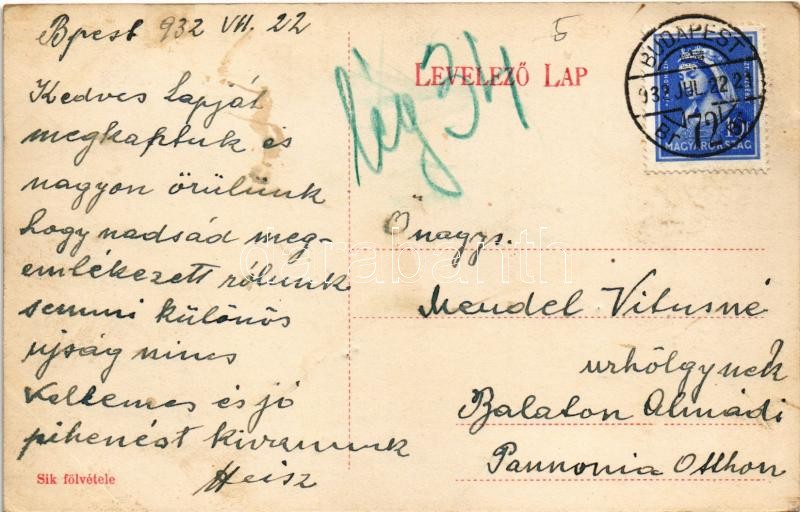 Bpest 932 VII. 22
Kedves lapját
megkaptuk és
nagyon örülünk
hogy nadsád meg-
emlékezett rólunk
semmi különös
ujság nincs
Kellemes és jó
pihenést kivanunk
Heisz
Sik fölvétele
lég 34
5
LEVELEZŐ LAP
BUDAPEST
932 JUL. 22 21
72
MAGYARORSZÁG
Önagys.
Mendel Vitusné
urhölgynek
Balaton Almádi
Pannonia Otthon
darabanth